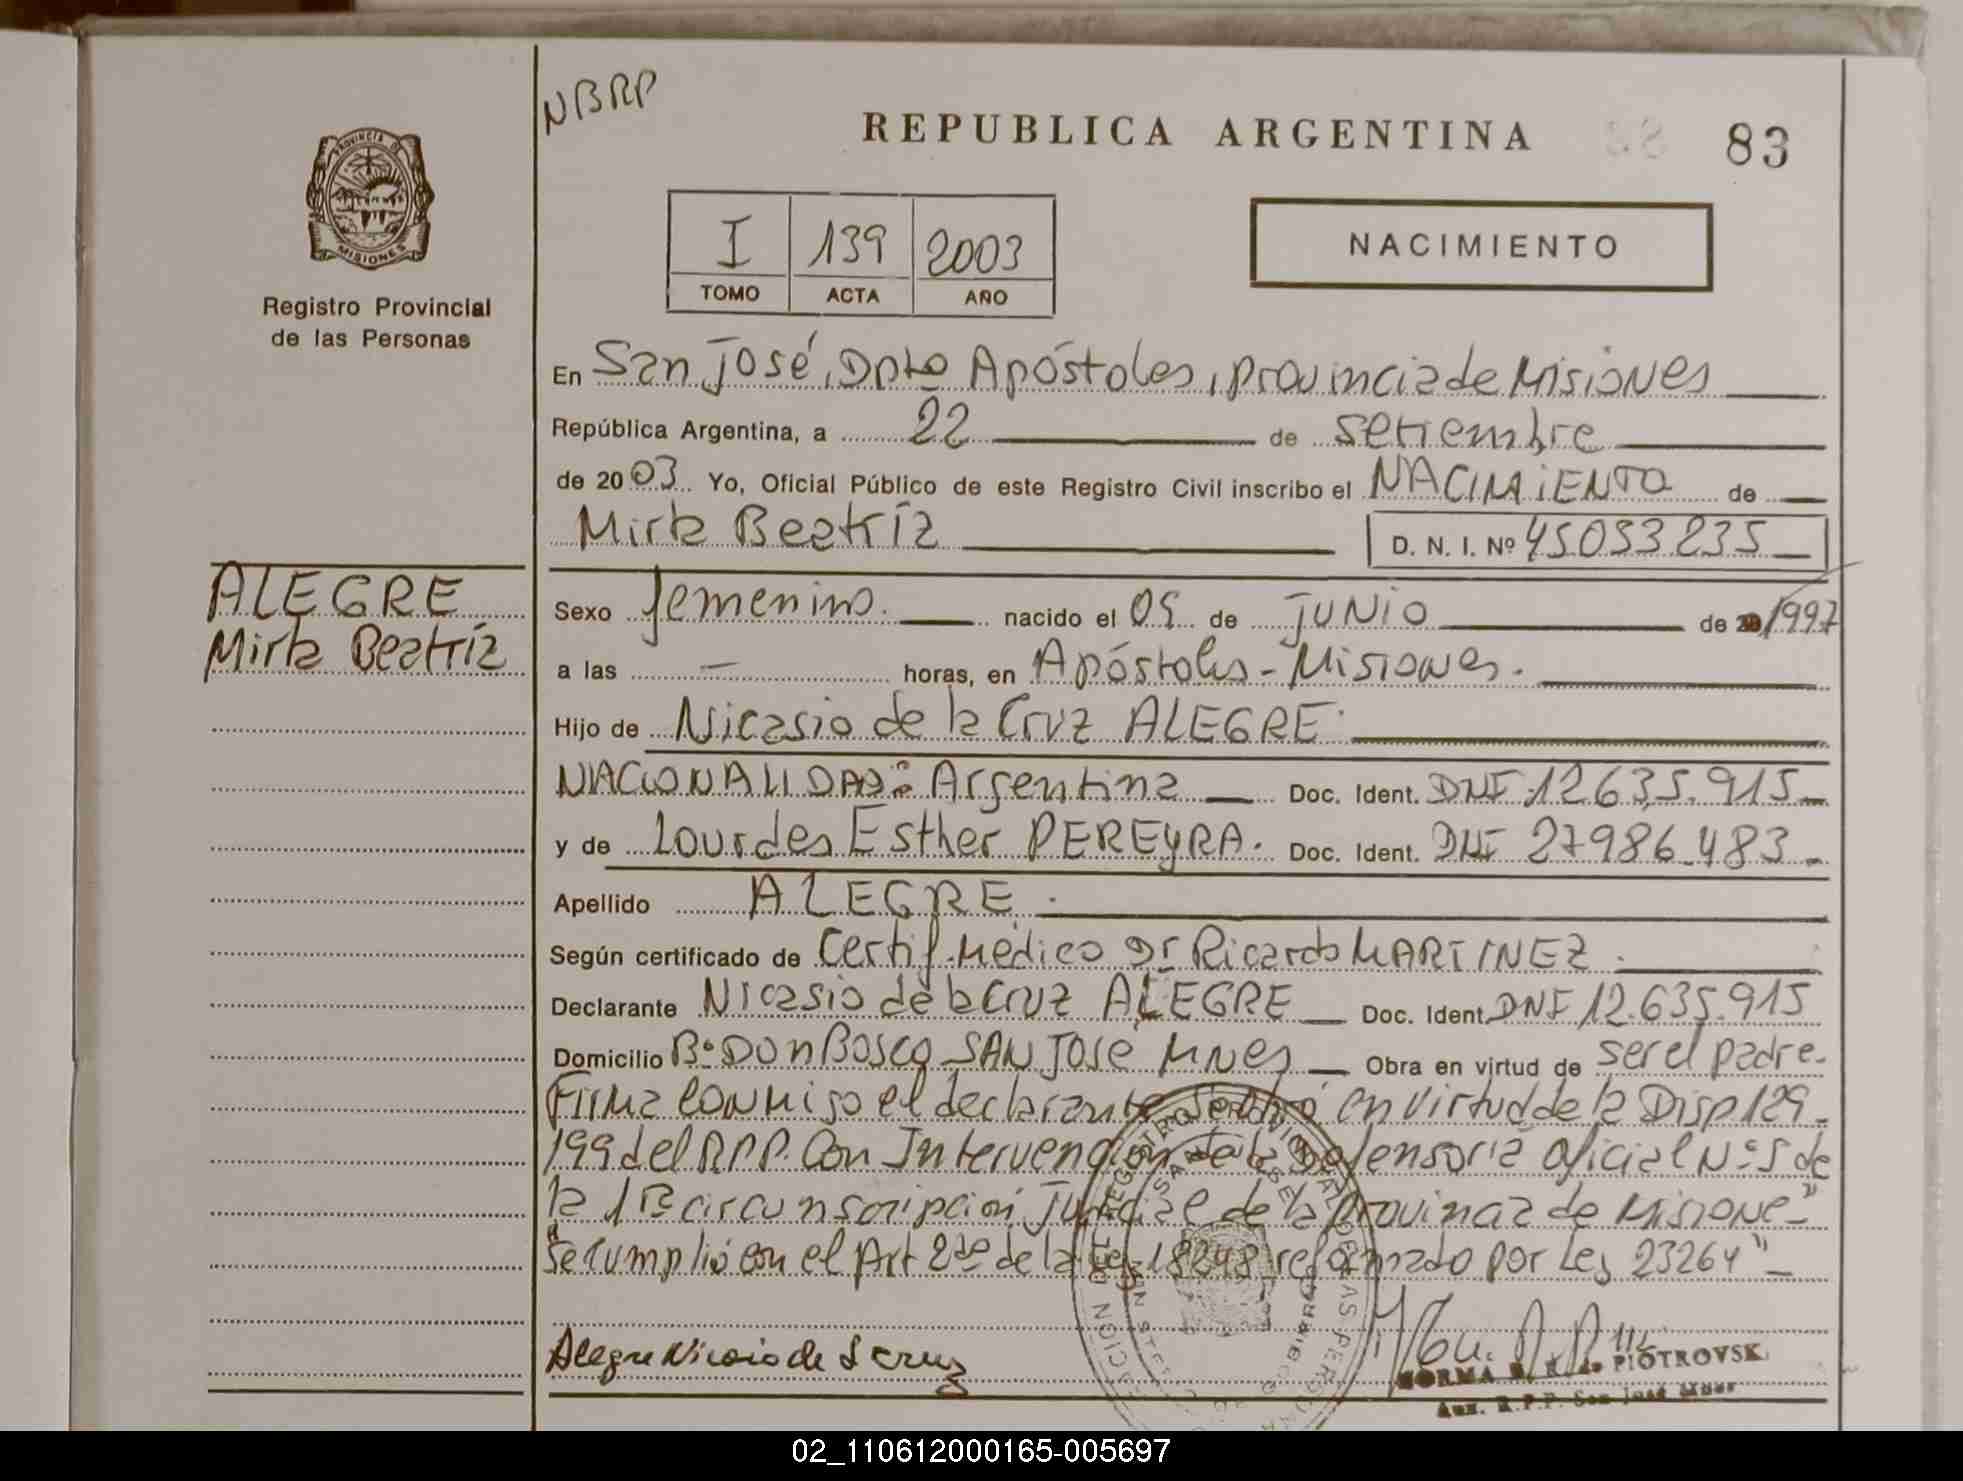 NBRP
REPUBLICA ARGENTINA
83
PROVINCIA DE
MISIONES
Registro Provincial
de las Personas
I 139 2003
TOMO ACTA AÑO
NACIMIENTO
En San José, Dpto Apóstoles, provincia de Misiones
República Argentina, a 22 de setiembre
de 2003 Yo, Oficial Público de este Registro Civil inscribo el NACIMIENTO de
Mirta Beatríz D. N. I. Nº 45033235
ALEGRE
Mirta Beatríz
Sexo femenino. nacido el 05 de JUNIO de 1997
a las — horas, en Apóstoles - Misiones.
Hijo de Nicasio de la Cruz ALEGRE
NACIONALIDAD: Argentina Doc. Ident. DNI 12.635.915
y de Lourdes Esther PEREyRA. Doc. Ident. DNI 27986.483
Apellido ALEGRE.
Según certificado de Certif. Médico Dr Ricardo MARTINEZ.
Declarante Nicasio de la Cruz ALEGRE Doc. Ident. DNI 12.635.915
Domicilio Bº DON BOSCO SAN JOSE MNES Obra en virtud de ser el padre.
Firma conmigo el declarante en virtud de la Disp 129
199 del RPP. Con Intervención de la Defensoría Oficial Nº 5 de
la 1ra circunscripción Judicial de la Provincia de Misiones
"Se cumplió con el Art 2do de la Ley 18248 reformado por Ley 23264"
Alegre Nicasio de l cruz
NORMA de PIOTROVSKI
Aux. R.P.P. San José Mnes
02_110612000165-005697